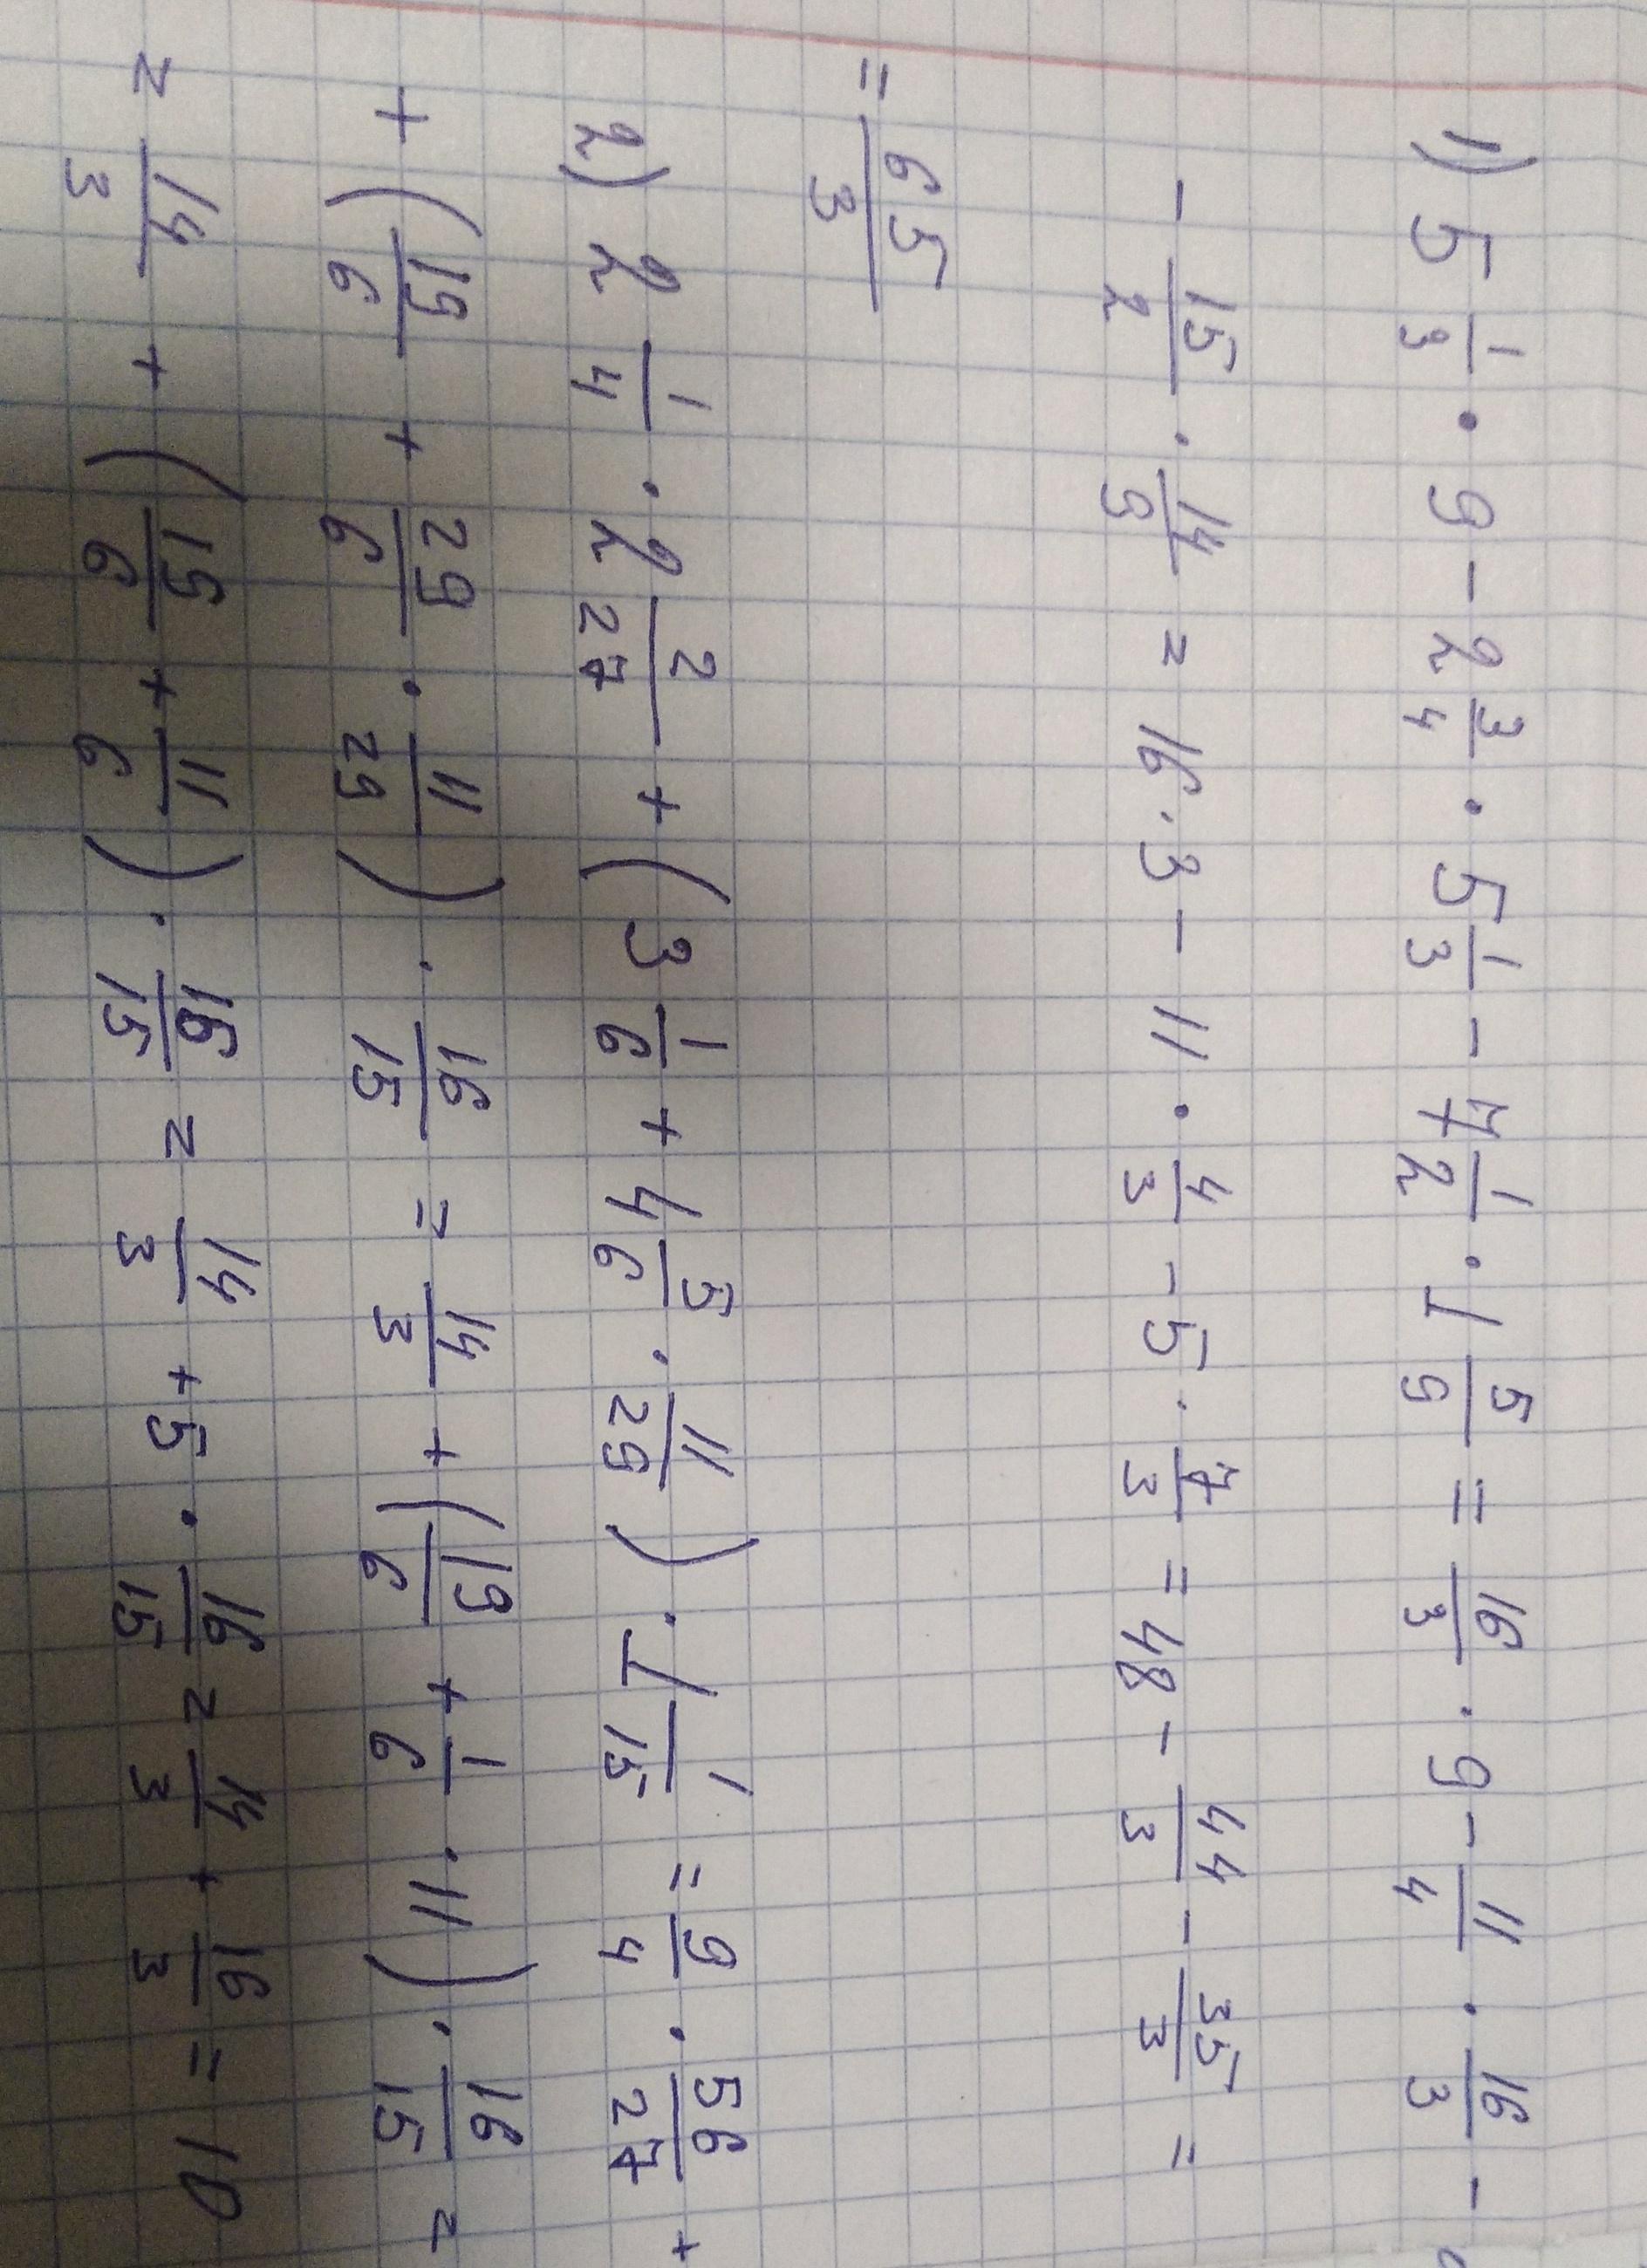 1) 5 1/3 · 9 - 2 3/4 · 5 1/3 - 7 1/2 · 1 5/9 = 16/3 · 9 - 11/4 · 16/3 -
- 15/2 · 14/9 = 16 · 3 - 11 · 4/3 - 5 · 7/3 = 48 - 44/3 - 35/3 =
= 65/3
2) 2 1/4 · 2 2/27 + (3 1/6 + 4 5/6 · 11/29) · 1 1/15 = 9/4 · 56/27 +
+ (19/6 + 29/6 · 11/29) · 16/15 = 14/3 + (19/6 + 1/6 · 11) · 16/15 =
= 14/3 + (19/6 + 11/6) · 16/15 = 14/3 + 5 · 16/15 = 14/3 + 16/3 = 10